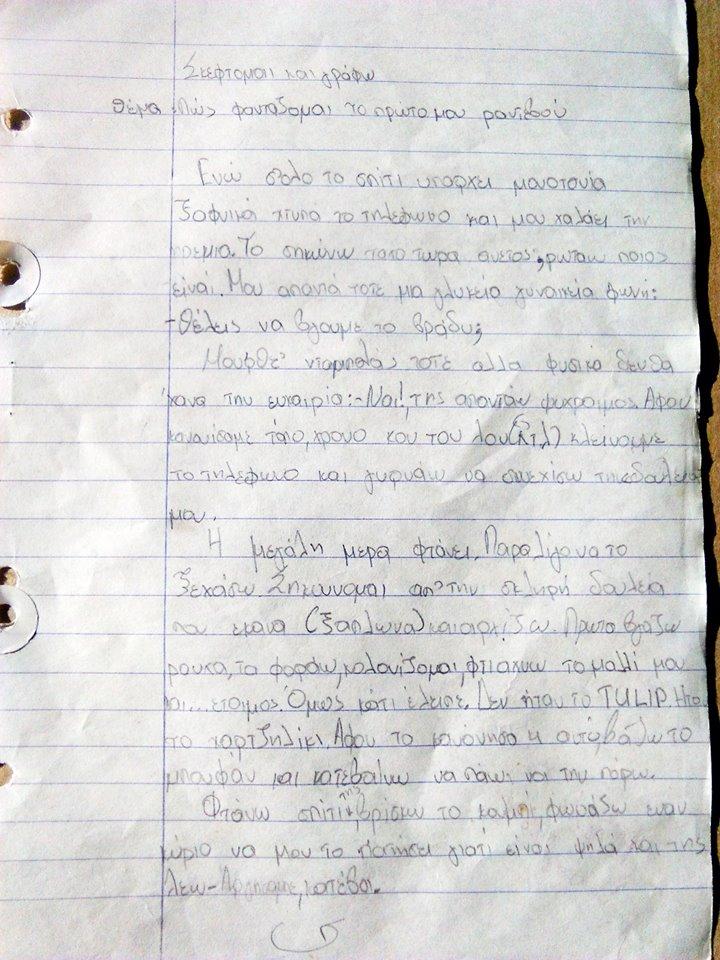 Σκέφτομαι και γράφω
θέμα: Πώς φαντάζομαι το πρώτο μου ραντεβού
Ενώ σ'όλο το σπίτι υπάρχει μονοτονία
ξαφνικά χτυπά το τηλέφωνο και μου χαλάει την
ηρεμία. Το σηκώνω τώρα ρωτάω ποιος
είναι. Μου απαντά τότε μια γλυκεία γυναικεία φωνή:
-Θέλεις να βγούμε το βράδυ;
Μουρθε νταμπλάς τότε αλλα φυσικά δεν θα
χανα την ευκαιρία:-Ναι!, της απαντάω ψυχραιμος. Αφου
κανονίσαμε τόπο, χρονο και του λου(κτλ) κλείνουμε
το τηλέφωνο και γυρνάω να συνεχίσω
μου.
Η μεγάλη μερα φτάνει. Παραλίγο να το
ξεχάσω. Σηκωνομαι απ'την σκληρή δουλεία
που εκανα (ξάπλωνα) και αρχίζω. Πρωτα βγάζω
ρουχα, τα φοράω, κολονιζομαι, φτιαχνω το μαλλί μου
και... έτοιμος. Όμως κάτι έλειπε. Δεν ήταν το TULIP. Ηταν
το χαρτζηλίκι. Αφου το κανόνησα κι αυτο βάζω το
μπουφάν και κατεβαίνω να πάω να την πάρω.
Φτάνω σπίτι της, βρίσκω το κουμπί, φωνάζω εναν
κύριο να μου το πατήσει γιατί είναι ψηλά και της
λεω- κατέβα.